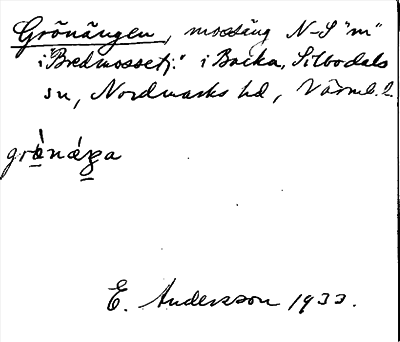 Grönängen, mossäng N-S "m"
i "Bredmossetj." i Backa, Silbodals
sn, Nordmarks hd, Värml. l.
E. Andersson 1933.